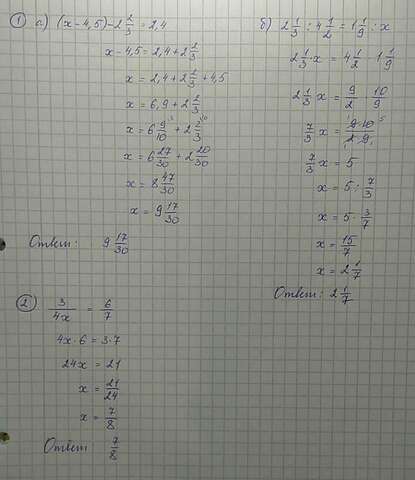 ① а) (x-4,5)-2 2/3 = 2,4
x-4,5 = 2,4+2 2/3
x = 2,4+2 2/3+4,5
x = 6,9+2 2/3
x = 6 9/10 + 2 2/3
x = 6 27/30 + 2 20/30
x = 8 47/30
x = 9 17/30
Ответ: 9 17/30
б) 2 1/3 : 4 1/2 = 1 1/9 : x
2 1/3 · x = 4 1/2 · 1 1/9
2 1/3 x = 9/2 · 10/9
7/3 x = 9·10/2·9
7/3 x = 5
x = 5 : 7/3
x = 5 · 3/7
x = 15/7
x = 2 1/7
Ответ: 2 1/7
② 3/4x = 6/7
4x·6 = 3·7
24x = 21
x = 21/24
x = 7/8
Ответ 7/8